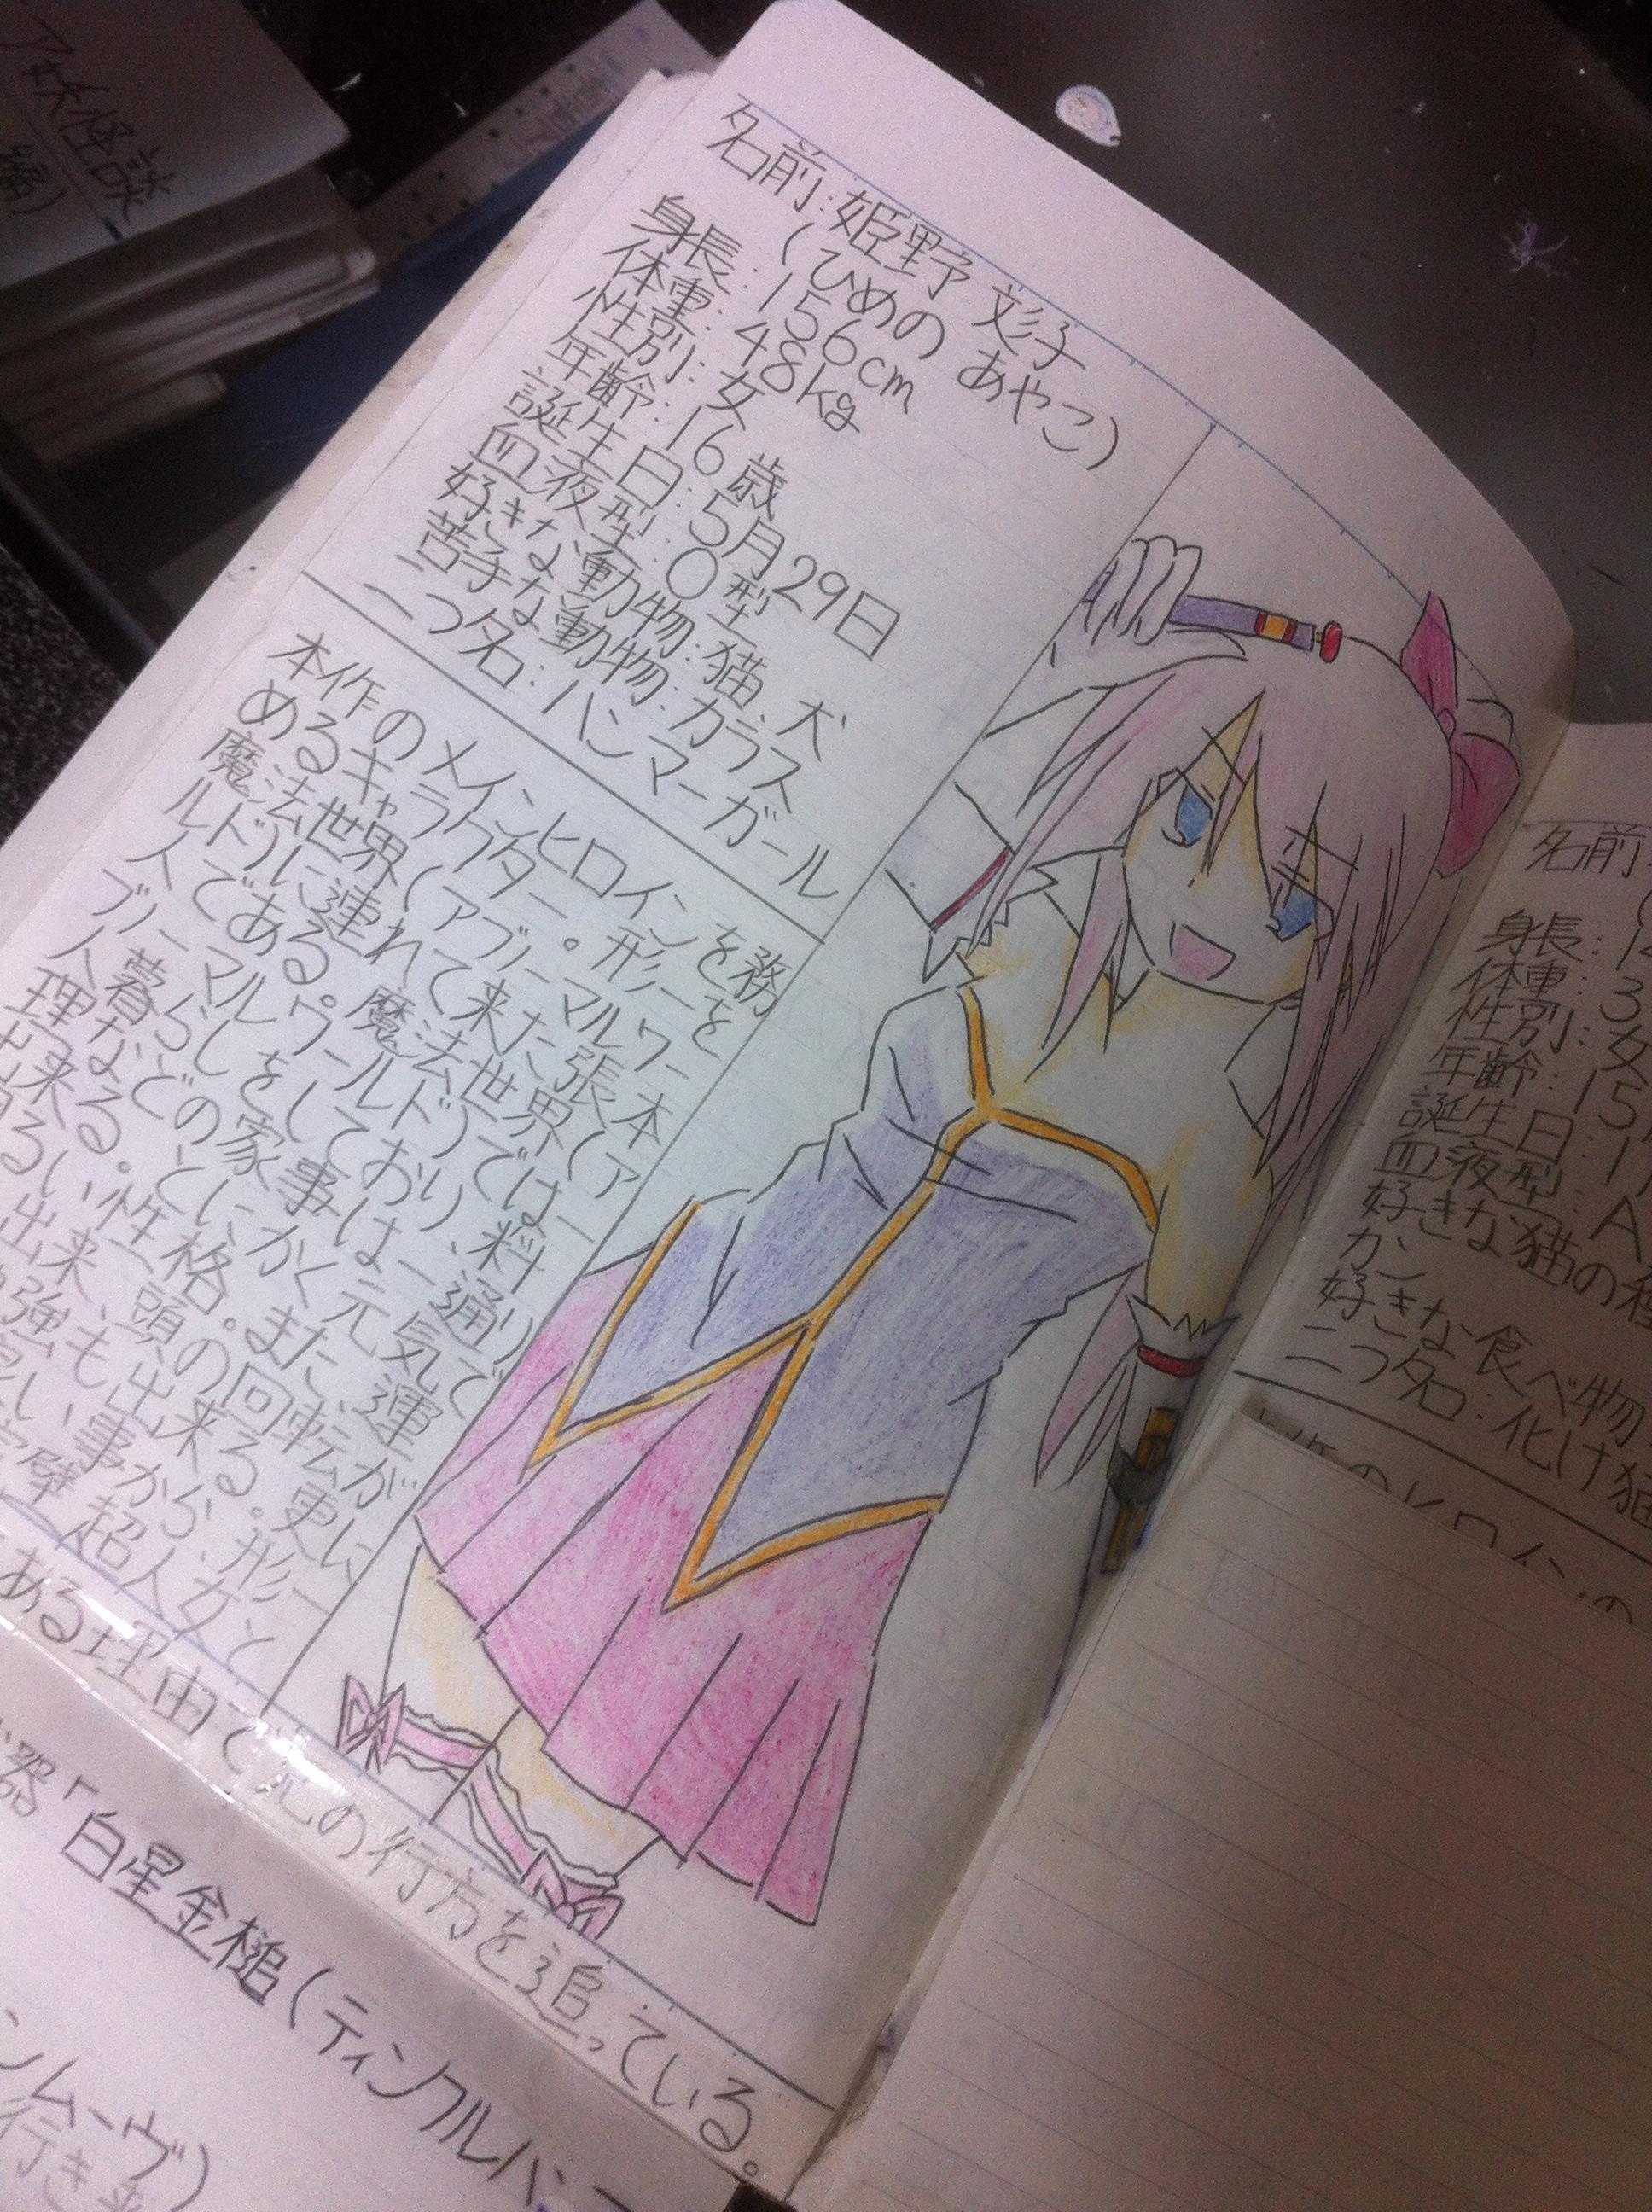 ア妖怪談
名前:姫野 彩子
(ひめの あやこ)
身長:156cm
体重:48kg
性別:女
年齢:16歳
誕生日:5月29日
血液型:O型
好きな動物:猫、犬
苦手な動物:カラス
二つ名:ハンマーガール
本作のメインヒロインを務
めるキャラクター。形ニを
魔法世界(アブノーマルワー
ルド)に連れて来た張本
人である。魔法世界(ア
ブノーマルワールド)では一
人暮らしをしており、料
理などの家事は一通り
出来る。とにかく元気で
明るい性格。また、運
出来、頭の回転が
強も出来る。更に
事から、形ニ
超人女と
ある理由で兄の行方を追っている。
器「白星金槌(ティンクルハンマ
ムーヴ)
行き
名前
身長:1
体重:3
性別:女
年齢:15
誕生日:1
血液型:A
好きな猫の種
か
好きな食べ物
二つ名:化け猫
作のヒロインの